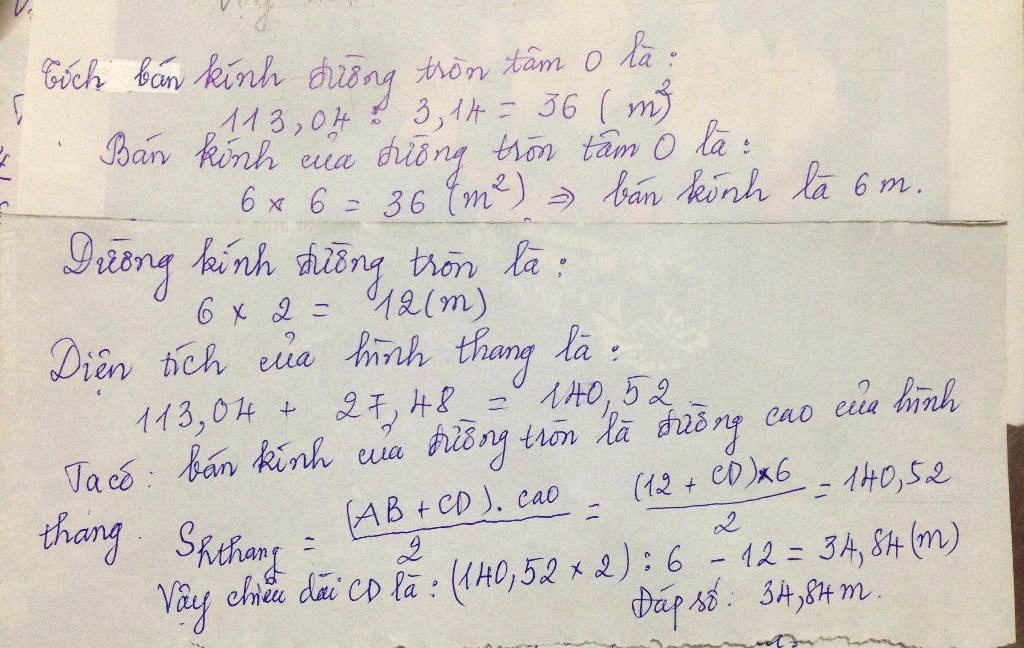 Tích bán kính đường tròn tâm O là:
113,04 : 3,14 = 36 (m²)
Bán kính của đường tròn tâm O là:
6 x 6 = 36 (m²) => bán kính là 6 m.
Đường kính đường tròn là:
6 x 2 = 12 (m)
Diện tích của hình thang là:
113,04 + 27,48 = 140,52
Ta có: bán kính của đường tròn là đường cao của hình
thang. Shthang = (AB + CD). cao / 2 = (12 + CD) x 6 / 2 = 140,52
Vậy chiều dài CD là: (140,52 x 2) : 6 - 12 = 34,84 (m)
Đáp số: 34,84 m.